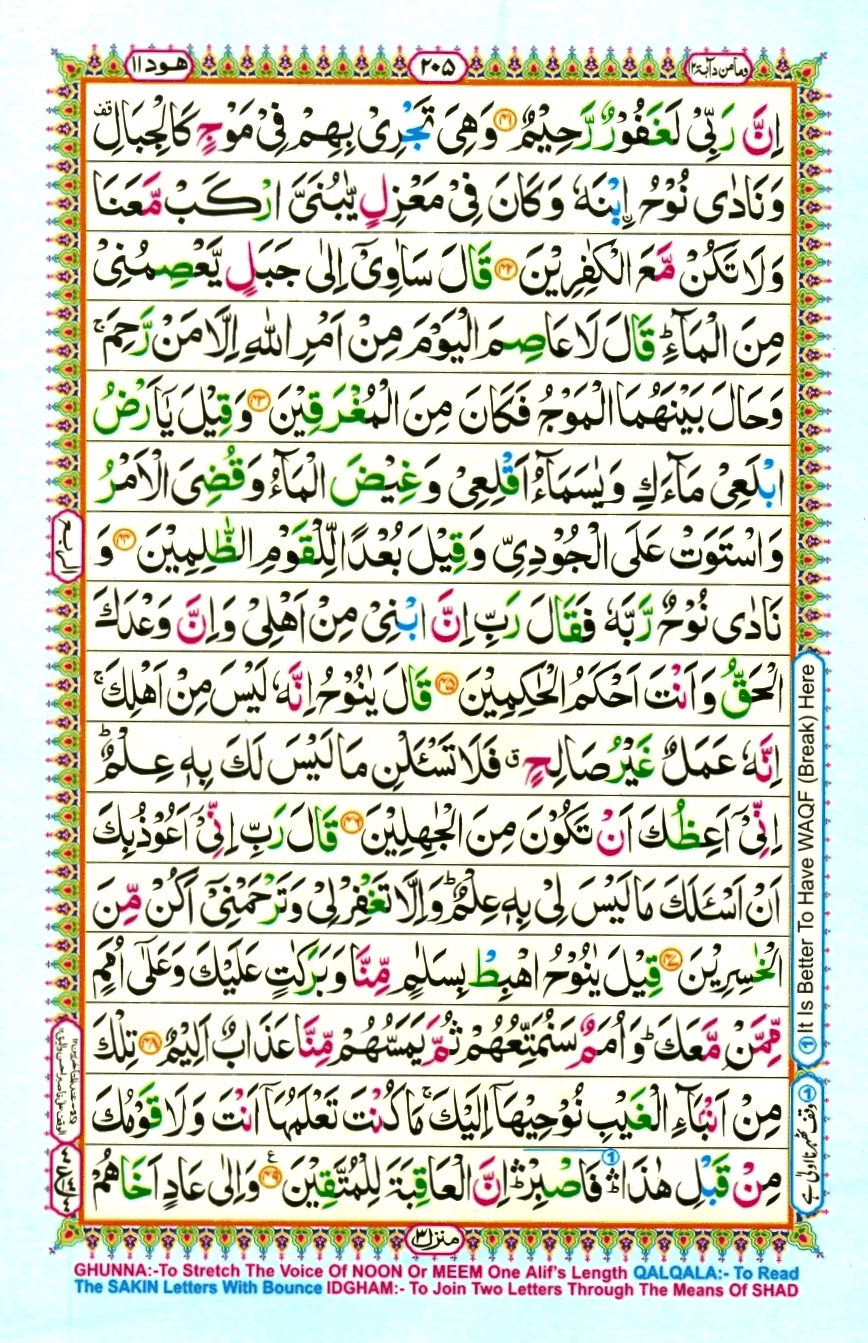 ومامن دآبة ۱۲
۲۰۵
هود ۱۱
اِنَّ رَبِّیْ لَغَفُوْرٌ رَّحِیْمٌ ﴿۴۱﴾ وَهِیَ تَجْرِیْ بِهِمْ فِیْ مَوْجٍ كَالْجِبَالِ قف
وَنَادٰی نُوْحُ اِ۟بْنَهٗ وَكَانَ فِیْ مَعْزِلٍ یّٰبُنَیَّ ارْكَبْ مَّعَنَا
وَلَا تَكُنْ مَّعَ الْكٰفِرِیْنَ ﴿۴۲﴾ قَالَ سَاٰوِیْۤ اِلٰی جَبَلٍ یَّعْصِمُنِیْ
مِنَ الْمَآءِ ؕ قَالَ لَا عَاصِمَ الْیَوْمَ مِنْ اَمْرِ اللّٰهِ اِلَّا مَنْ رَّحِمَ ۚ
وَحَالَ بَیْنَهُمَا الْمَوْجُ فَكَانَ مِنَ الْمُغْرَقِیْنَ ﴿۴۳﴾ وَقِیْلَ یٰۤاَرْضُ
ابْلَعِیْ مَآءَكِ وَیٰسَمَآءُ اَقْلِعِیْ وَغِیْضَ الْمَآءُ وَقُضِیَ الْاَمْرُ
وَاسْتَوَتْ عَلَی الْجُوْدِیِّ وَقِیْلَ بُعْدًا لِّلْقَوْمِ الظّٰلِمِیْنَ ﴿۴۴﴾ وَ
نَادٰی نُوْحٌ رَّبَّهٗ فَقَالَ رَبِّ اِنَّ ابْنِیْ مِنْ اَهْلِیْ وَاِنَّ وَعْدَكَ
الْحَقُّ وَاَنْتَ اَحْكَمُ الْحٰكِمِیْنَ ﴿۴۵﴾ قَالَ یٰنُوْحُ اِنَّهٗ لَیْسَ مِنْ اَهْلِكَ ۚ
اِنَّهٗ عَمَلٌ غَیْرُ صَالِحٍ ق فَلَا تَسْـَٔلْنِ مَا لَیْسَ لَكَ بِهٖ عِلْمٌ ؕ
اِنِّیْۤ اَعِظُكَ اَنْ تَكُوْنَ مِنَ الْجٰهِلِیْنَ ﴿۴۶﴾ قَالَ رَبِّ اِنِّیْۤ اَعُوْذُ بِكَ
اَنْ اَسْـَٔلَكَ مَا لَیْسَ لِیْ بِهٖ عِلْمٌ ؕ وَاِلَّا تَغْفِرْ لِیْ وَتَرْحَمْنِیْۤ اَكُنْ مِّنَ
الْخٰسِرِیْنَ ﴿۴۷﴾ قِیْلَ یٰنُوْحُ اهْبِطْ بِسَلٰمٍ مِّنَّا وَبَرَكٰتٍ عَلَیْكَ وَعَلٰۤی اُمَمٍ
مِّمَّنْ مَّعَكَ ؕ وَاُمَمٌ سَنُمَتِّعُهُمْ ثُمَّ یَمَسُّهُمْ مِّنَّا عَذَابٌ اَلِیْمٌ ﴿۴۸﴾ تِلْكَ
مِنْ اَنْۢبَآءِ الْغَیْبِ نُوْحِیْهَاۤ اِلَیْكَ ۚ مَا كُنْتَ تَعْلَمُهَاۤ اَنْتَ وَلَا قَوْمُكَ
مِنْ قَبْلِ هٰذَا ۛؕ فَاصْبِرْ ۛؕ اِنَّ الْعَاقِبَةَ لِلْمُتَّقِیْنَ ﴿۴۹﴾ ع وَاِلٰی عَادٍ اَخَاهُمْ
1
1 It Is Better To Have WAQF (Break) Here
منزل ۳
GHUNNA:-To Stretch The Voice Of NOON Or MEEM One Alif's Length QALQALA:- To Read
The SAKIN Letters With Bounce IDGHAM:- To Join Two Letters Through The Means Of SHAD